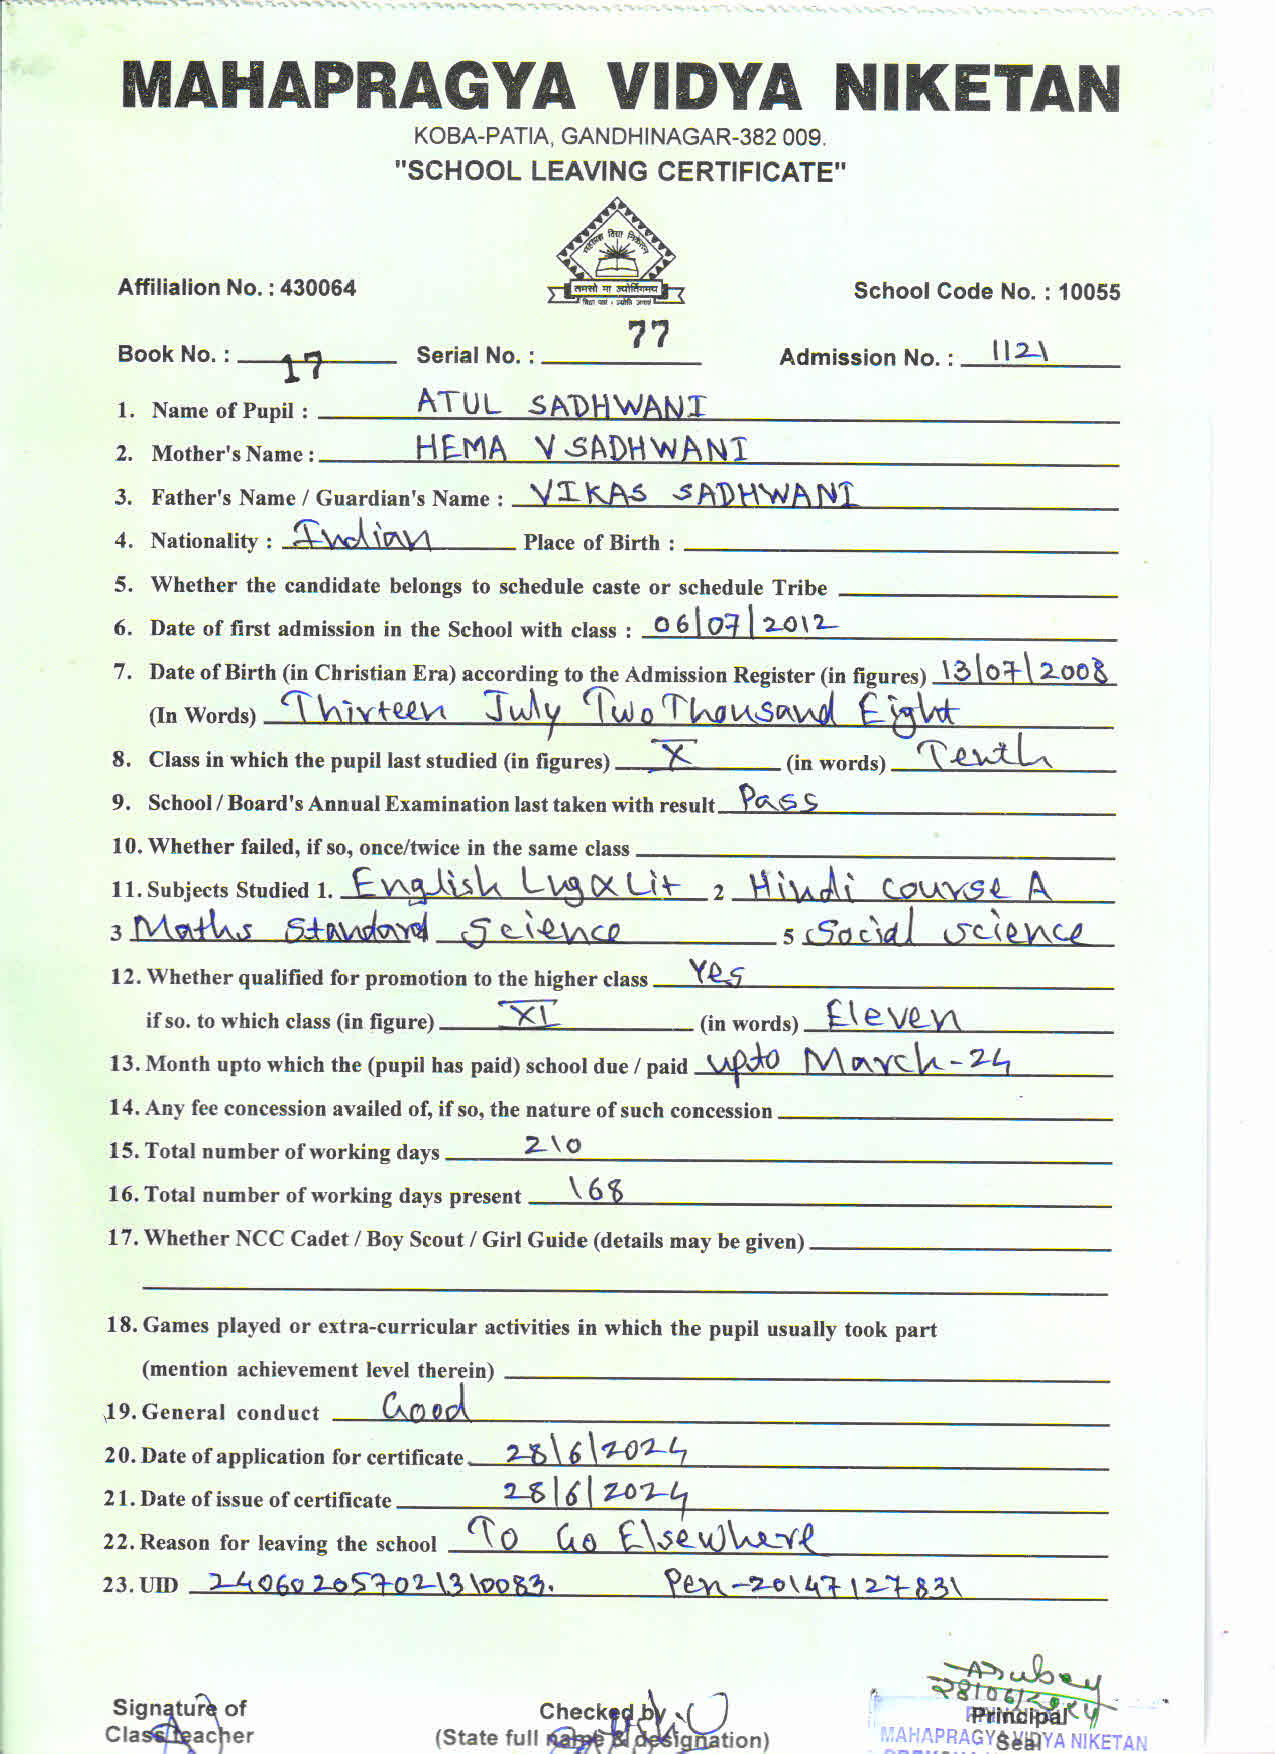 MAHAPRAGYA VIDYA NIKETAN
KOBA-PATIA, GANDHINAGAR-382 009.
"SCHOOL LEAVING CERTIFICATE"
महाप्रज्ञ विद्या निकेतन
तमसो मा ज्योतिर्गमय
Affilialion No. : 430064
School Code No. : 10055
Book No. : 17 Serial No. : 77 Admission No. : 1121
1. Name of Pupil : ATUL SADHWANI
2. Mother's Name : HEMA V SADHWANI
3. Father's Name / Guardian's Name : VIKAS SADHWANI
4. Nationality : Indian Place of Birth :
5. Whether the candidate belongs to schedule caste or schedule Tribe
6. Date of first admission in the School with class : 06/07/2012
7. Date of Birth (in Christian Era) according to the Admission Register (in figures) 13/07/2008
(In Words) Thirteen July Two Thousand Eight
8. Class in which the pupil last studied (in figures) X (in words) Tenth
9. School / Board's Annual Examination last taken with result Pass
10. Whether failed, if so, once/twice in the same class
11. Subjects Studied 1. English Lng & Lit 2 Hindi course A
3 Maths Standard Science 5 Social science
12. Whether qualified for promotion to the higher class Yes
if so. to which class (in figure) XI (in words) Eleven
13. Month upto which the (pupil has paid) school due / paid upto March-24
14. Any fee concession availed of, if so, the nature of such concession
15. Total number of working days 210
16. Total number of working days present 168
17. Whether NCC Cadet / Boy Scout / Girl Guide (details may be given)
18. Games played or extra-curricular activities in which the pupil usually took part
(mention achievement level therein)
19. General conduct Good
20. Date of application for certificate 28/6/2024
21. Date of issue of certificate 28/6/2024
22. Reason for leaving the school To Go Elsewhere
23. UID 240602057021310083. Pen-20147127831
Signature of
Class teacher
Checked by
(State full name & designation)
ADubey
28/06/2024
Principal
Seal
MAHAPRAGYA VIDYA NIKETAN